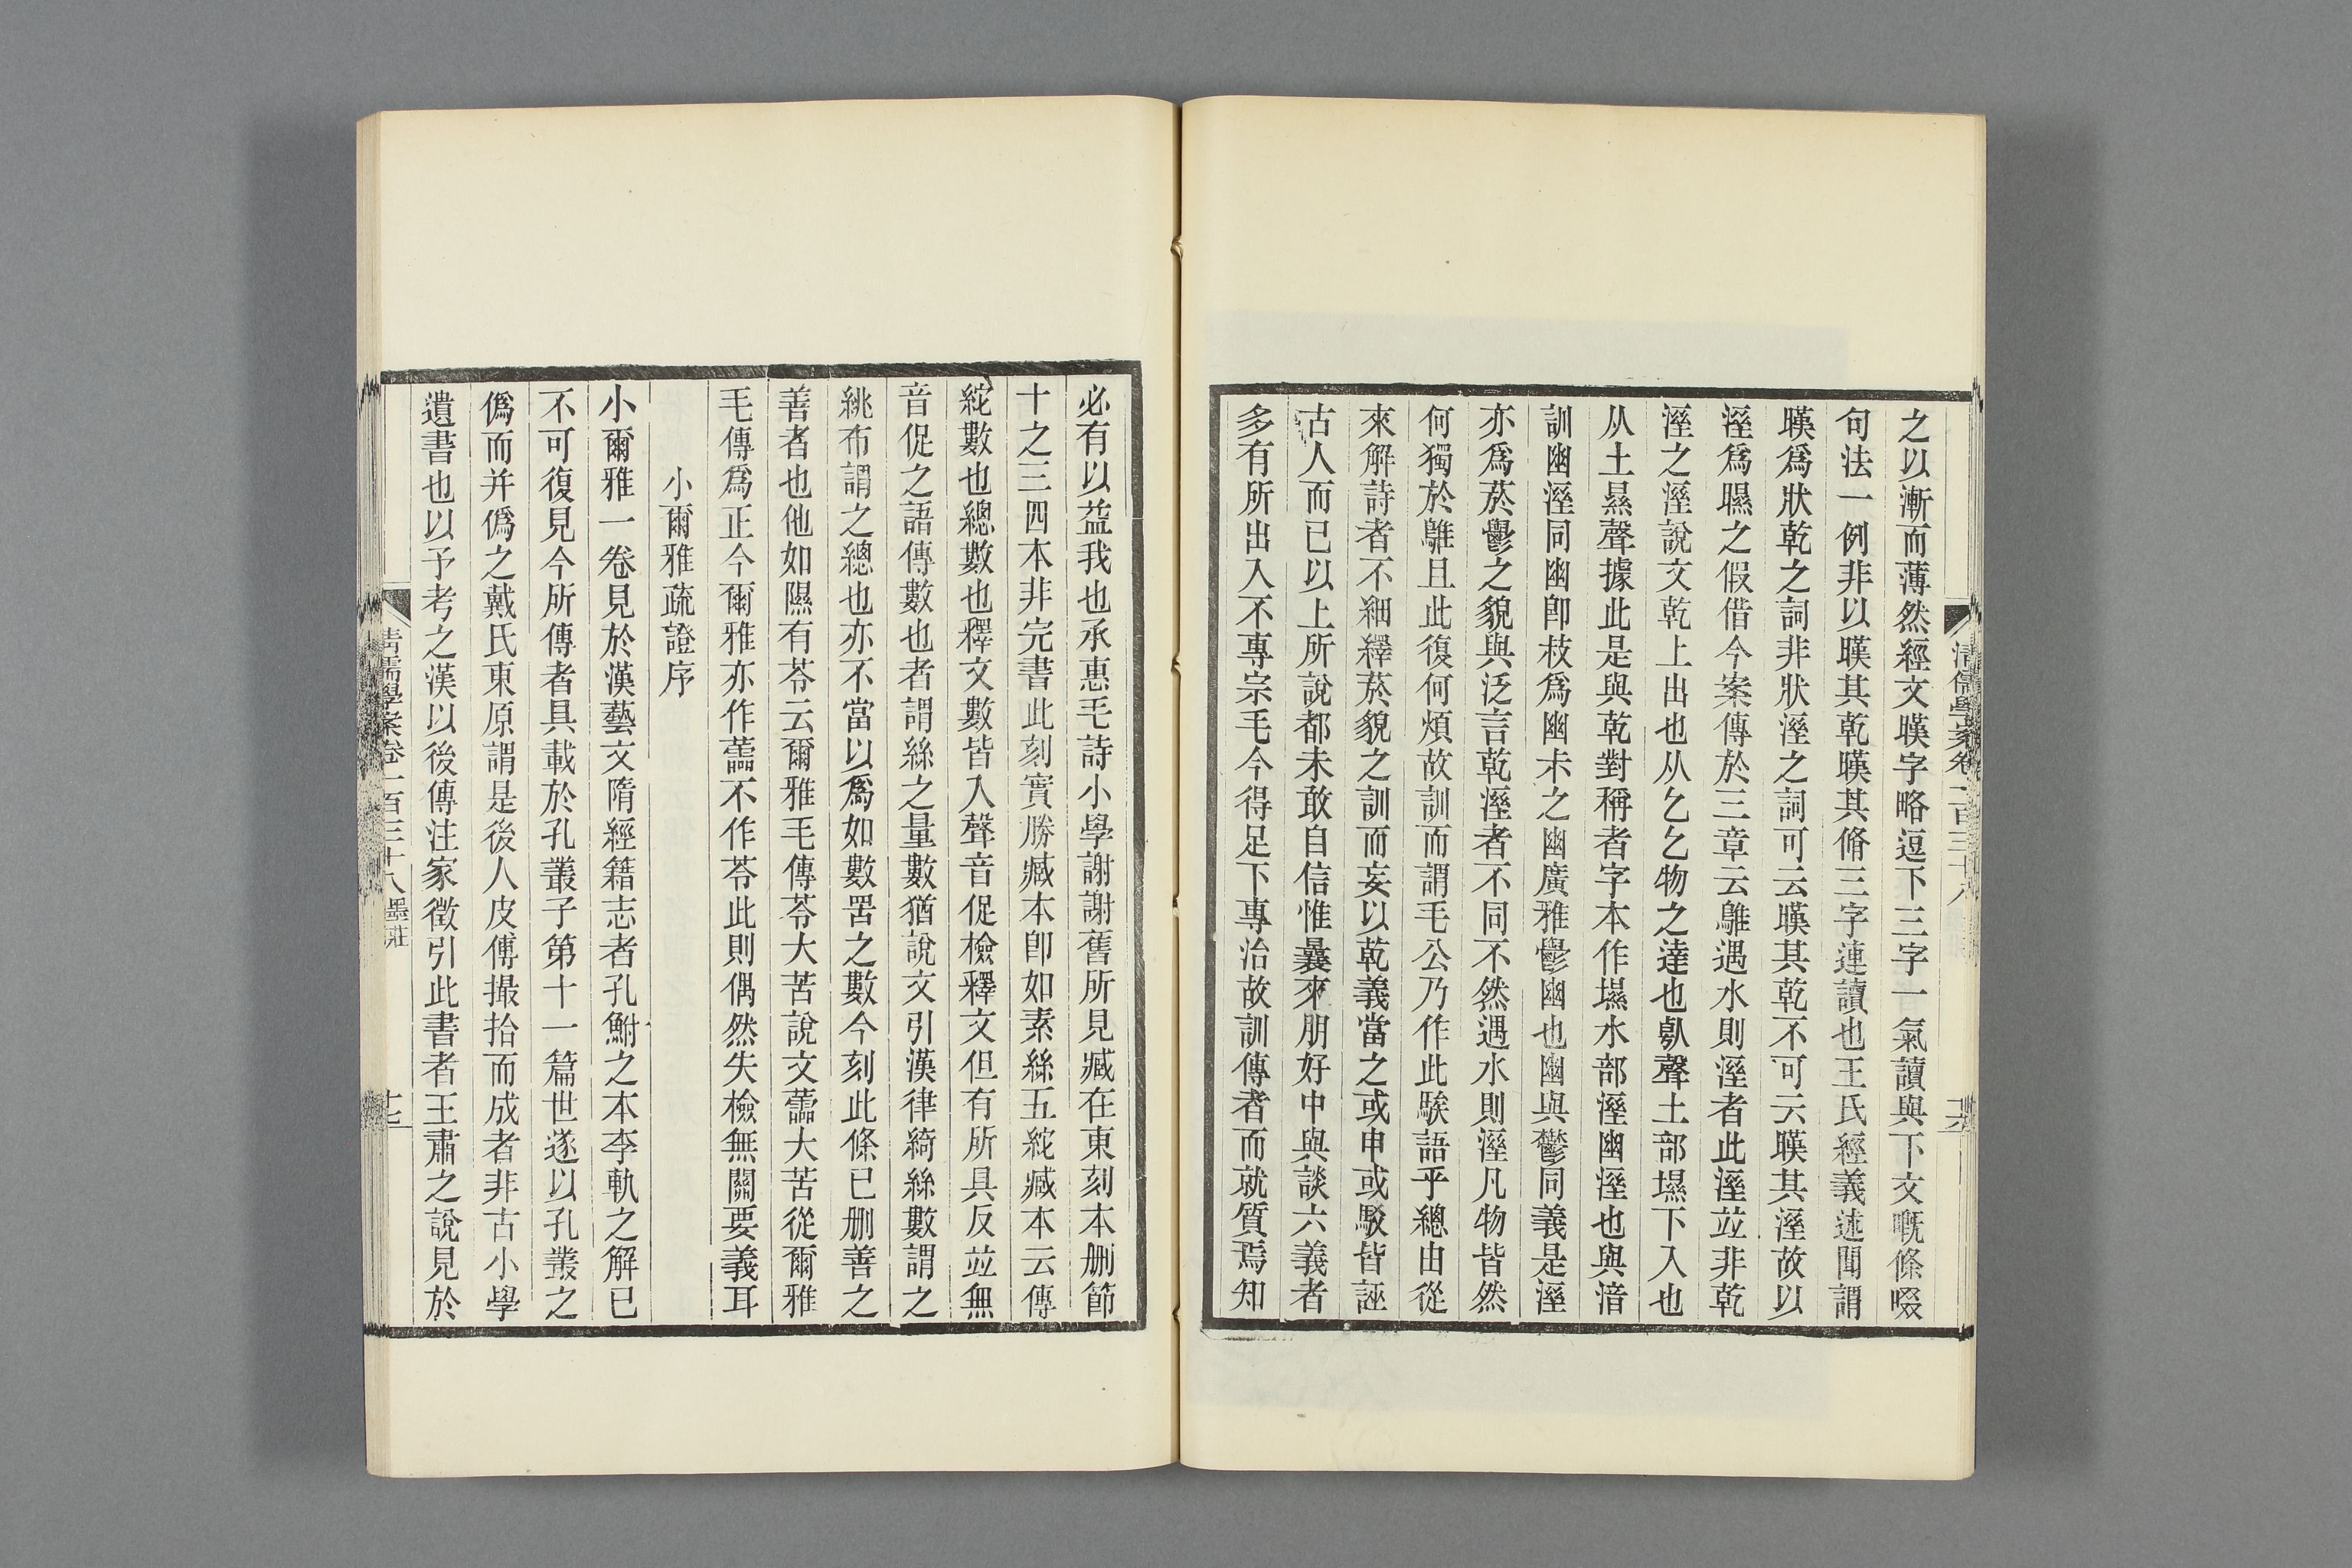 之以漸而薄然經文暵字略逗下三字一氣讀與下文嘅條啜
句法一例非以暵其乾暵其脩三字連讀也王氏經義述聞謂
暵爲狀乾之詞非狀溼之詞可云暵其乾不可云暵其溼故以
溼爲㬤之假借今案傳於三章云鵻遇水則溼者此溼竝非乾
溼之溼說文乾上出也从乙乙物之達也倝聲土部壏下入也
从土㬎聲據此是與乾對稱者字本作壏水部溼幽溼也與湆
訓幽溼同幽卽枝爲幽朩之幽廣雅鬱幽也幽與鬱同義是溼
亦爲菸鬱之貌與泛言乾溼者不同不然遇水則溼凡物皆然
何獨於鵻且此復何煩故訓而謂毛公乃作此騃語乎總由從
來解詩者不細繹菸貌之訓而妄以乾義當之或申或駮皆誣
古人而已以上所說都未敢自信惟曩來朋好中與談六義者
多有所出入不專宗毛今得足下專治故訓傳者而就質焉知
必有以益我也承惠毛詩小學謝謝舊所見臧在東刻本刪節
十之三四本非完書此刻實勝臧本卽如素絲五紽臧本云傳
紽數也總數也釋文數皆入聲音促檢釋文但有所具反竝無
音促之語傳數也者謂絲之量數猶說文引漢律綺絲數謂之
絩布謂之總也亦不當以爲如數罟之數今刻此條已刪善之
善者也他如隰有苓云爾雅毛傳苓大苦說文蘦大苦從爾雅
毛傳爲正今爾雅亦作蘦不作苓此則偶然失檢無關要義耳
小爾雅疏證序
小爾雅一卷見於漢藝文隋經籍志者孔鮒之本李軌之解已
不可復見今所傳者具載於孔叢子第十一篇世遂以孔叢之
僞而并僞之戴氏東原謂是後人皮傅撮拾而成者非古小學
遺書也以予考之漢以後傳注家徵引此書者王肅之說見於
清儒學案卷一百三十八 墨莊
十七